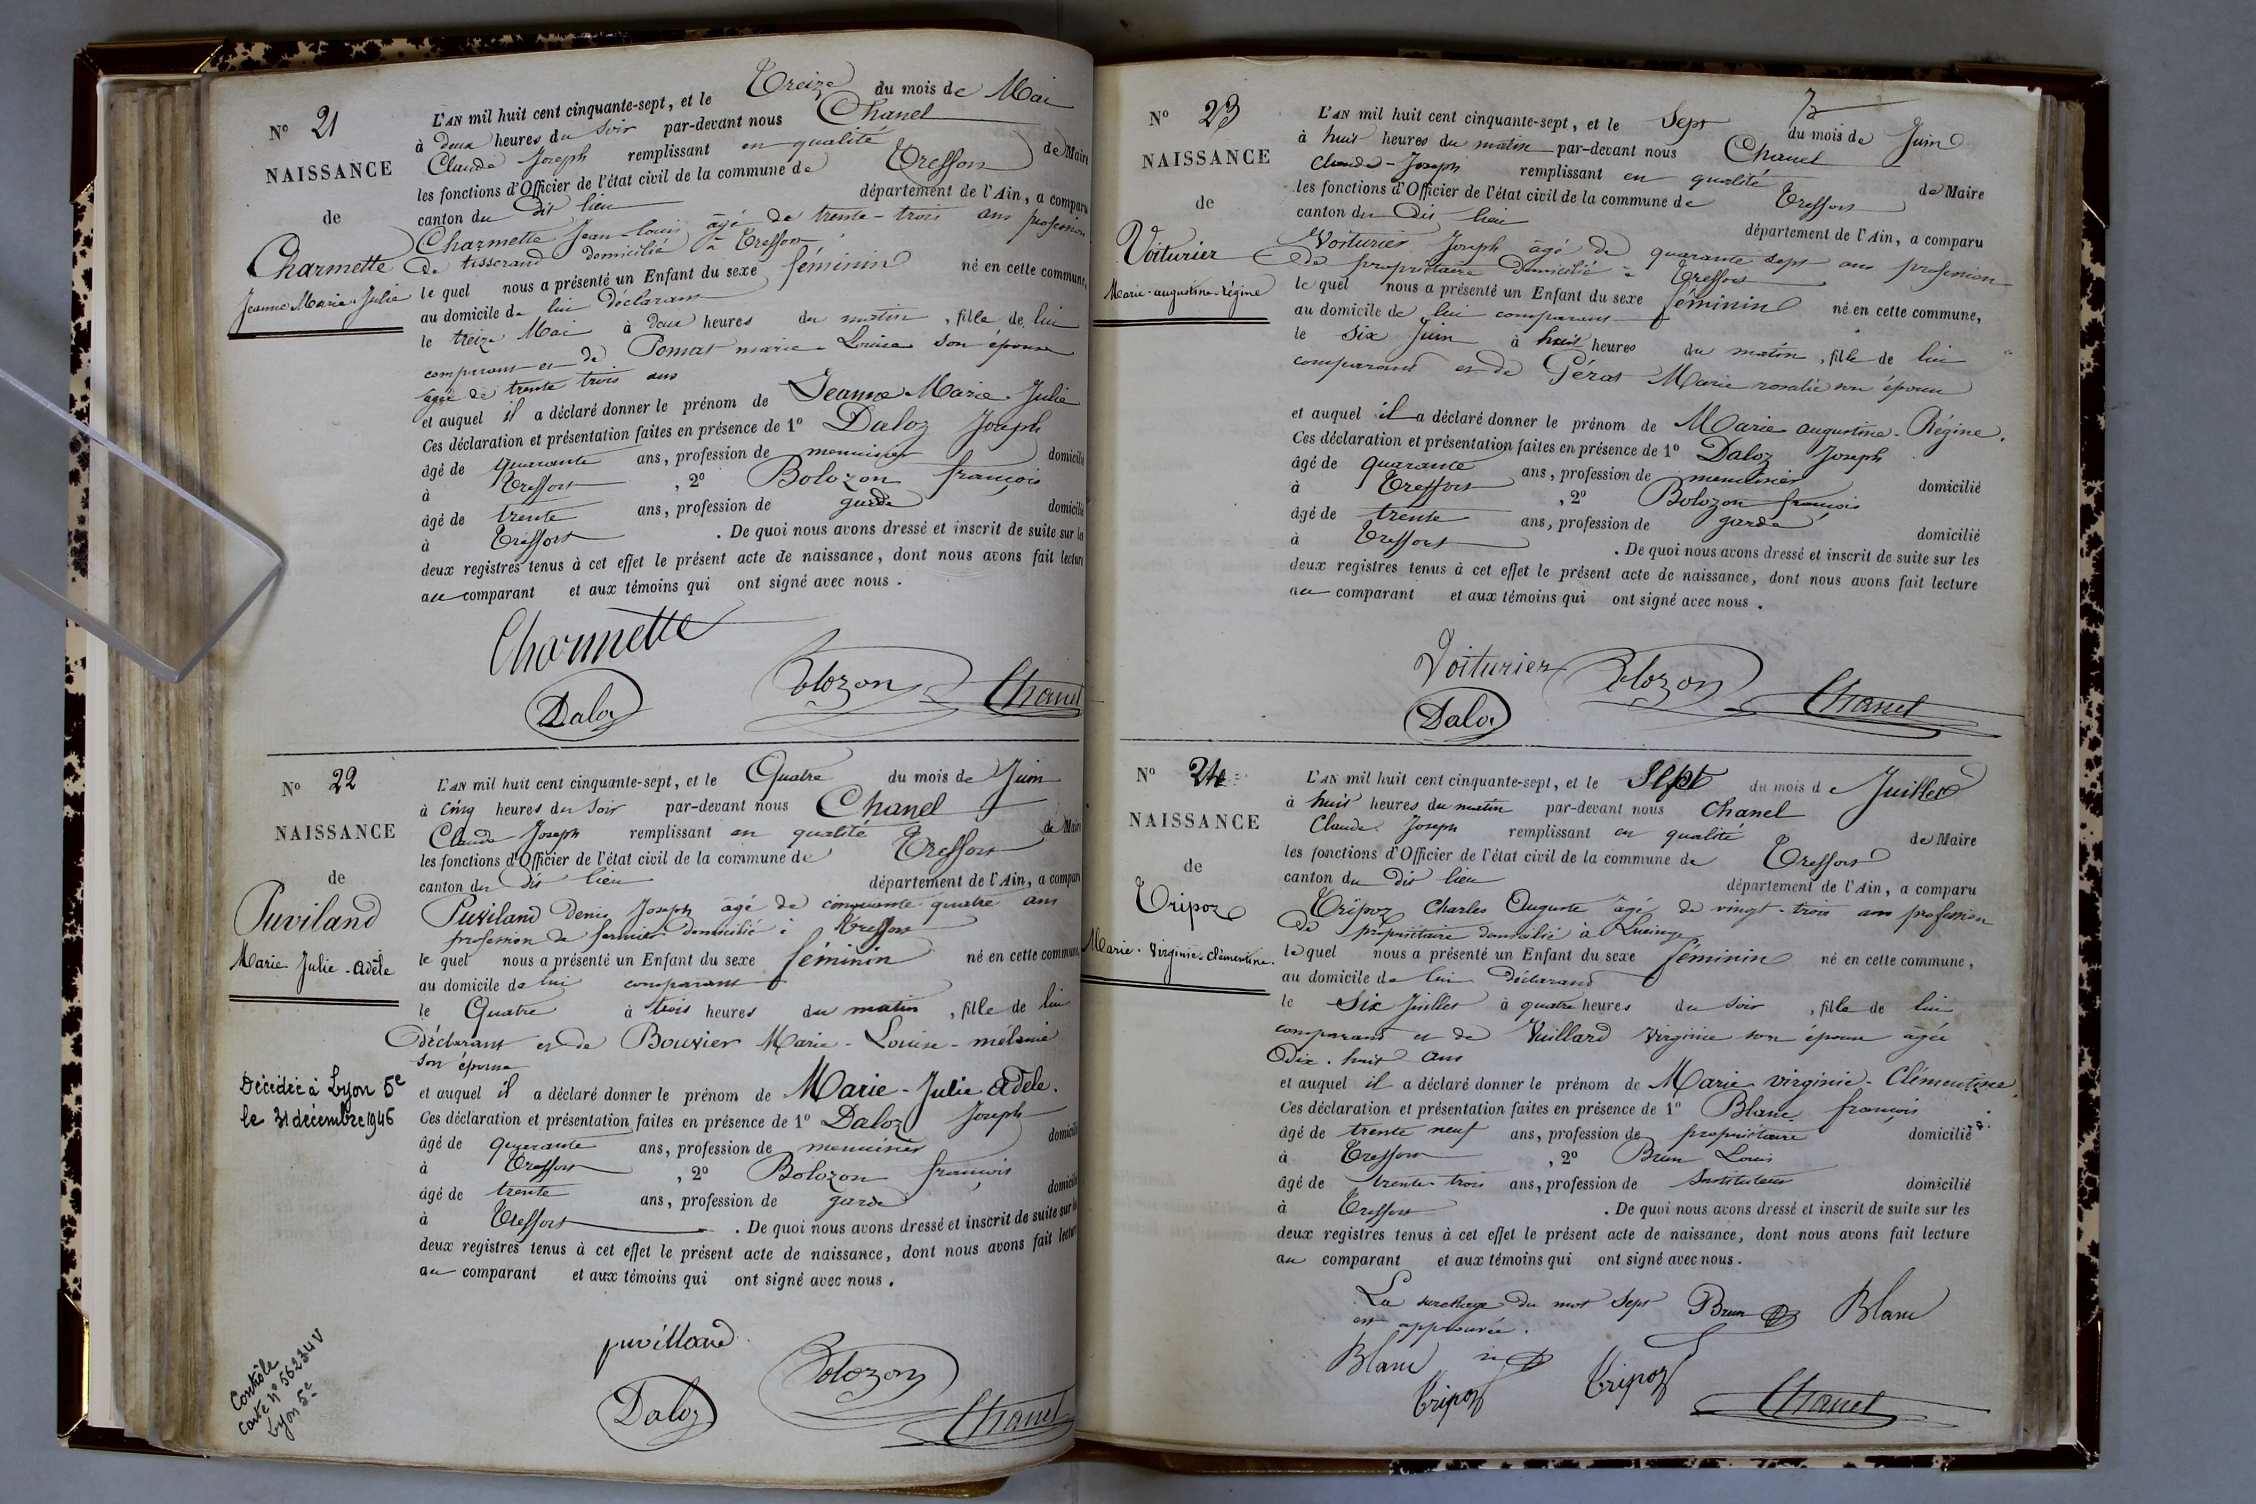 N° 21
NAISSANCE
de
Charmette
Jeanne Marie Julie
L'AN mil huit cent cinquante-sept, et le Treize du mois de Mai
à deux heures du soir par-devant nous Chanel
Claude Joseph remplissant en qualité de Maire
les fonctions d'Officier de l'état civil de la commune de Treffort
canton du dit lieu département de l'Ain, a comparu
Charmette Jean Louis âgé de trente-trois ans profession
de tisserand domicilié à Treffort
le quel nous a présenté un Enfant du sexe féminin né en cette commune,
au domicile de lui déclarant
le treize Mai à deux heures du matin, fille de lui
comparant et de Pomat marie Louise son épouse
âgée de trente trois ans
et auquel il a déclaré donner le prénom de Jeanne Marie Julie
Ces déclaration et présentation faites en présence de 1° Daloz Joseph
âgé de quarante ans, profession de menuisier domicilié
à Treffort, 2° Bolozon françois
âgé de trente ans, profession de garde domicilié
à Treffort. De quoi nous avons dressé et inscrit de suite sur les
deux registres tenus à cet effet le présent acte de naissance, dont nous avons fait lecture
au comparant et aux témoins qui ont signé avec nous.
Charmette
Bolozon
Chanel
Daloz
N° 22
NAISSANCE
de
Puviland
Marie Julie-adèle
Décédée à Lyon 5e
le 31 décembre 1946
Contrôle
Carte n° 56234 V
Lyon 5e
L'AN mil huit cent cinquante-sept, et le Quatre du mois de Juin
à cinq heures du soir par-devant nous Chanel
Claude Joseph remplissant en qualité de Maire
les fonctions d'Officier de l'état civil de la commune de Treffort
canton du dit lieu département de l'Ain, a comparu
Puviland denis Joseph âgé de cinquante quatre ans
profession de fermier domicilié à Treffort
le quel nous a présenté un Enfant du sexe féminin né en cette commune,
au domicile de lui comparant
le Quatre à trois heures du matin, fille de lui
déclarant et de Bouvier Marie-Louise-mélanie
son épouse
et auquel il a déclaré donner le prénom de Marie-Julie adèle.
Ces déclaration et présentation faites en présence de 1° Daloz Joseph
âgé de quarante ans, profession de menuisier domicilié
à Treffort, 2° Bolozon françois
âgé de trente ans, profession de garde domicilié
à Treffort. De quoi nous avons dressé et inscrit de suite sur les
deux registres tenus à cet effet le présent acte de naissance, dont nous avons fait lecture
au comparant et aux témoins qui ont signé avec nous.
puvilland
Bolozon
Daloz
Chanel
N° 23
NAISSANCE
de
Voiturier
Marie-augustine-régine
L'AN mil huit cent cinquante-sept, et le Sept du mois de Juin
à huit heures du matin par-devant nous Chanel
Claude-Joseph remplissant en qualité de Maire
les fonctions d'Officier de l'état civil de la commune de Treffort
canton du dit lieu département de l'Ain, a comparu
Voiturier Joseph âgé de quarante sept ans profession
de propriétaire domicilié à Treffort
le quel nous a présenté un Enfant du sexe féminin né en cette commune,
au domicile de lui comparant
le six juin à huit heures du matin, fille de lui
comparant et de Pérat Marie rosalie son épouse
et auquel il a déclaré donner le prénom de Marie augustine-Régine.
Ces déclaration et présentation faites en présence de 1° Daloz Joseph
âgé de quarante ans, profession de menuisier domicilié
à Treffort, 2° Bolozon françois
âgé de trente ans, profession de garde domicilié
à Treffort. De quoi nous avons dressé et inscrit de suite sur les
deux registres tenus à cet effet le présent acte de naissance, dont nous avons fait lecture
au comparant et aux témoins qui ont signé avec nous.
Voiturier
Bolozon
Chanel
Daloz
N° 24
NAISSANCE
de
Tripoz
Marie-Virginie-Clémentine.
L'AN mil huit cent cinquante-sept, et le Sept du mois de Juillet
à huit heures du matin par-devant nous Chanel
Claude Joseph remplissant en qualité de Maire
les fonctions d'Officier de l'état civil de la commune de Treffort
canton du dit lieu département de l'Ain, a comparu
Tripoz Charles Auguste âgé de vingt-trois ans profession
de propriétaire domicilié à
le quel nous a présenté un Enfant du sexe féminin né en cette commune,
au domicile de lui déclarant
le Six Juillet à quatre heures du soir, fille de lui
comparant et de Vuillard Virginie son épouse agée
dix-huit ans
et auquel il a déclaré donner le prénom de Marie virginie-Clémentine
Ces déclaration et présentation faites en présence de 1° Blanc françois
âgé de trente neuf ans, profession de propriétaire domicilié
à Treffort, 2° Brun Louis
âgé de trente trois ans, profession de Instituteur domicilié
à Treffort. De quoi nous avons dressé et inscrit de suite sur les
deux registres tenus à cet effet le présent acte de naissance, dont nous avons fait lecture
au comparant et aux témoins qui ont signé avec nous.
La surcharge du mot Sept Brun Blanc
est approuvée.
Blanc
Tripoz Tripoz Chanel